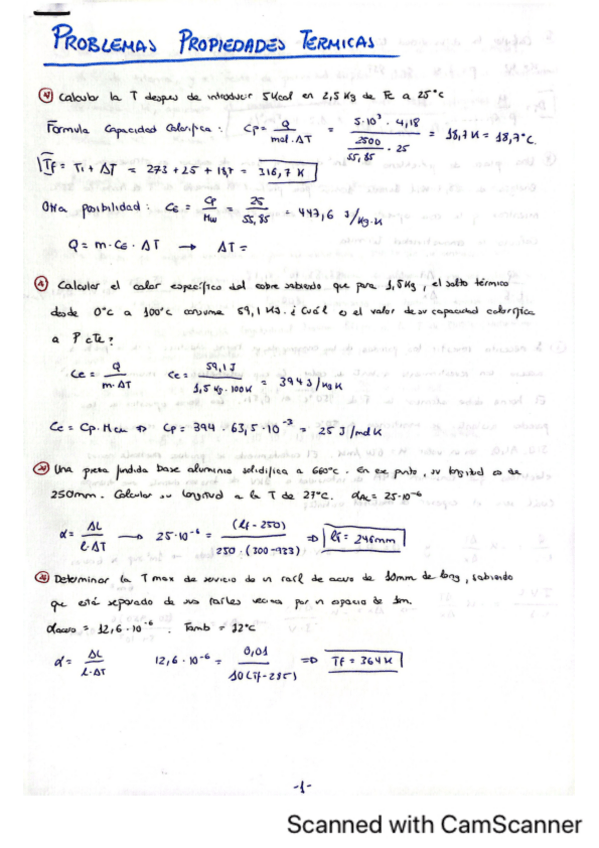 PROBLEMAS PROPIEDADES TERMICAS
Calcular la T despues de introducir 5Kcal en 2,5 Kg de Fe a 25°C
Formula Capacidad Calorifica : Cp = Q / mol·ΔT = 5·10³ · 4,18 / 2500/55,85 · 25 = 18,7 K = 18,7°C.
Tf = Ti + ΔT = 273 + 25 + 18,7 = 316,7 K
Otra posibilidad : Ce = Cp / Mw = 25 / 55,85 = 447,6 J/Kg·K
Q = m·Ce·ΔT → ΔT =
Calcular el calor especifico del cobre sabiendo que para 1,5Kg, el salto térmico
desde 0°C a 100°C consume 59,1 KJ. ¿Cuál es el valor de su capacidad calorifica
a P cte?
Ce = Q / m·ΔT Ce = 59,1 J / 1,5 Kg·100K = 394 J/Kg K
Ce = Cp·Mcu ⇒ Cp = 394 · 63,5 · 10⁻³ = 25 J/mol K
Una pieza fundida base aluminio solidifica a 660°C. En ese punto, su longitud es de
250mm. Calcular su longitud a la T de 27°C. αAl = 25·10⁻⁶
α = ΔL / l·ΔT → 25·10⁻⁶ = (lf - 250) / 250·(300-933) ⇒ lf = 246mm
Determinar la T max de servicio de un rail de acero de 10mm de long, sabiendo
que está separado de sus railes vecinos por un espacio de 1m.
αacero = 12,6·10⁻⁶. Tamb = 12°C
α = ΔL / l·ΔT 12,6·10⁻⁶ = 0,01 / 10(Tf-285) ⇒ Tf = 364 K
-1-
Scanned with CamScanner